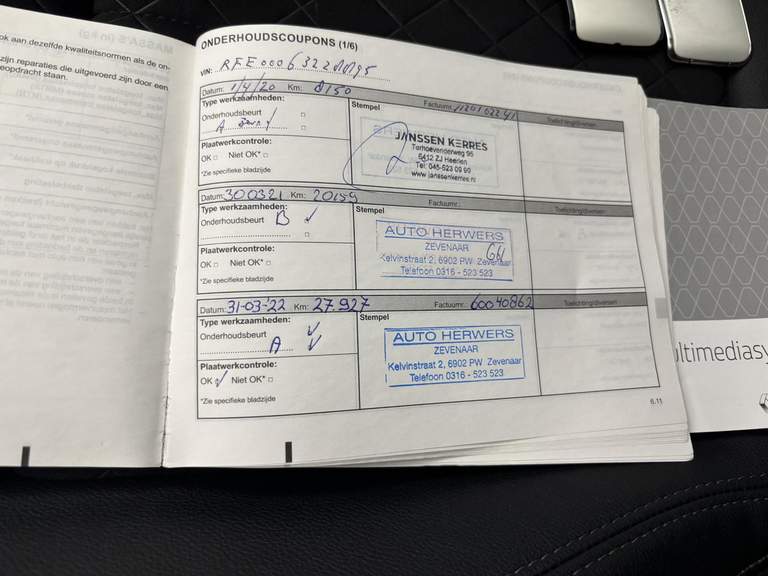 ok aan dezelfde kwaliteitsnormen als de on-
zijn reparaties die uitgevoerd zijn door een
eopdracht staan.
ONDERHOUDSCOUPONS (1/6)
VIN:
Datum: 1/4/20 Km: 8150 Factuurnr.:
Type werkzaamheden: Stempel Toelichting/diversen
Onderhoudsbeurt
A Beurt
JANSSEN KERRES
Terhoevenderweg 95
6412 ZJ Heerlen
Tel: 045-523 09 90
www.janssenkerres.nl
Plaatwerkcontrole:
OK Niet OK*
*Zie specifieke bladzijde
Datum: 300321 Km: 20159 Factuurnr.: Toelichting/diversen
Type werkzaamheden: Stempel
Onderhoudsbeurt B
AUTO HERWERS
ZEVENAAR
Kelvinstraat 2, 6902 PW Zevenaar
Telefoon 0316 - 523 523
Plaatwerkcontrole:
OK Niet OK*
*Zie specifieke bladzijde
Datum: 31-03-22 Km: 27.927 Factuurnr.: 60040862 Toelichting/diversen
Type werkzaamheden: Stempel
Onderhoudsbeurt
A
AUTO HERWERS
ZEVENAAR
Kelvinstraat 2, 6902 PW Zevenaar
Telefoon 0316 - 523 523
Plaatwerkcontrole:
OK Niet OK*
*Zie specifieke bladzijde
6.11
ltimediasy